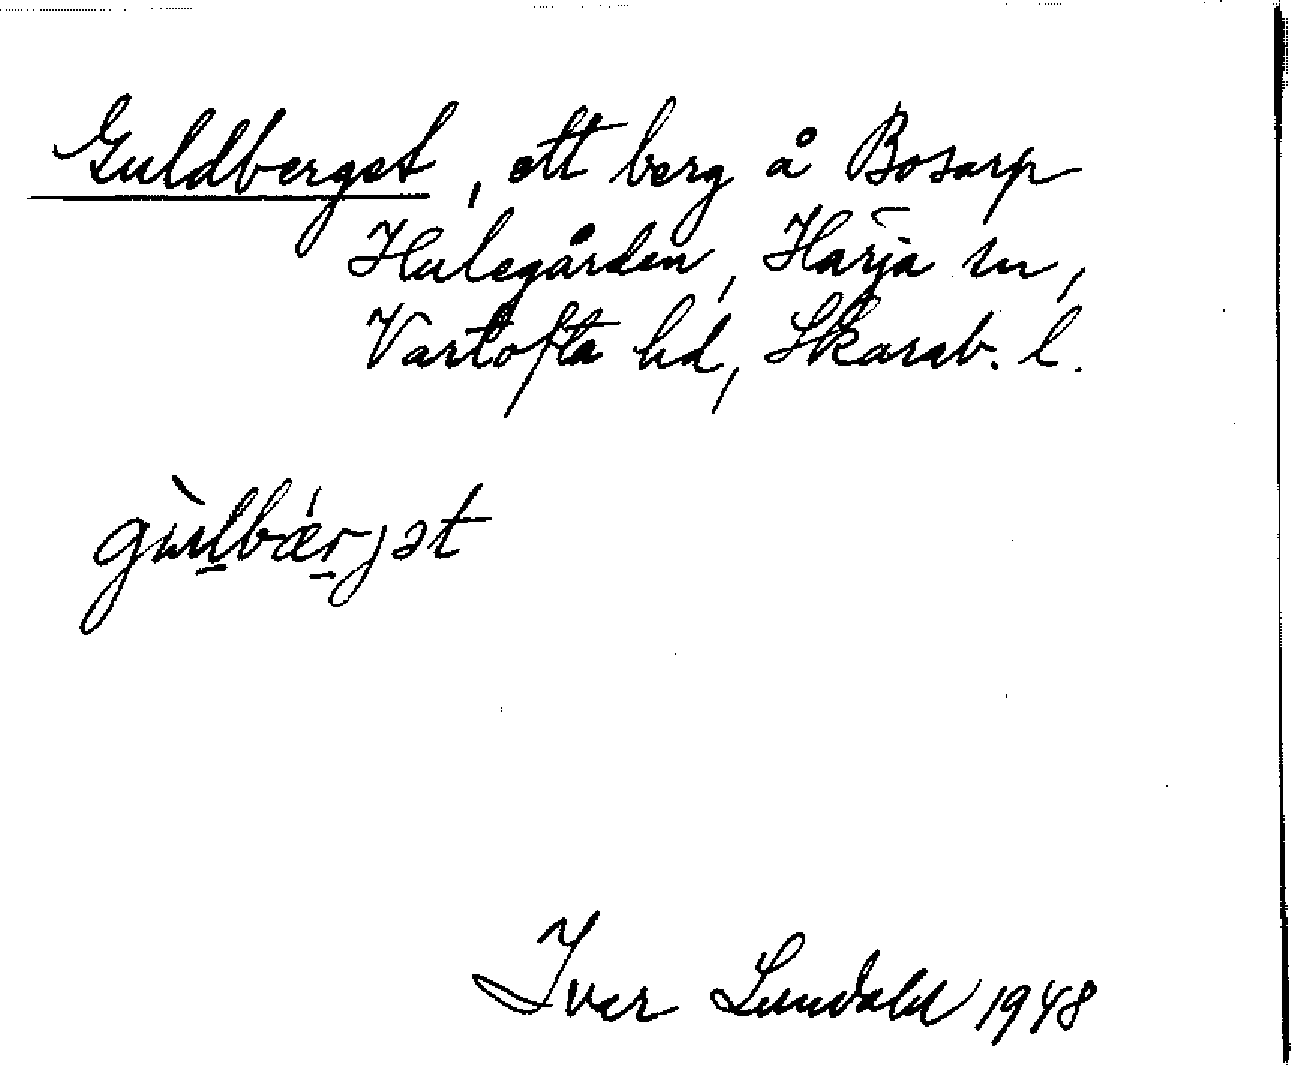 Guldberget, ett berg å Bosarp
Hulegården, Härja sn,
Vartofta hd, Skarab. l.
gùlbǽrjət
Ivar Lundahl 1948